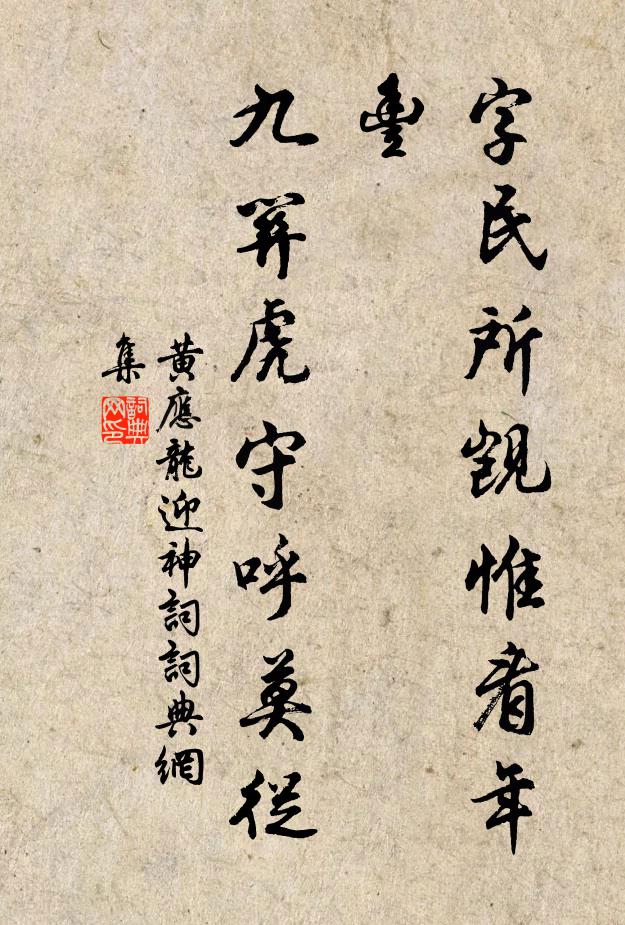 字民所覬惟者年
豐
九關虎守呼莫從
黄應龍迎神詞詞典網
集
詞典
网印